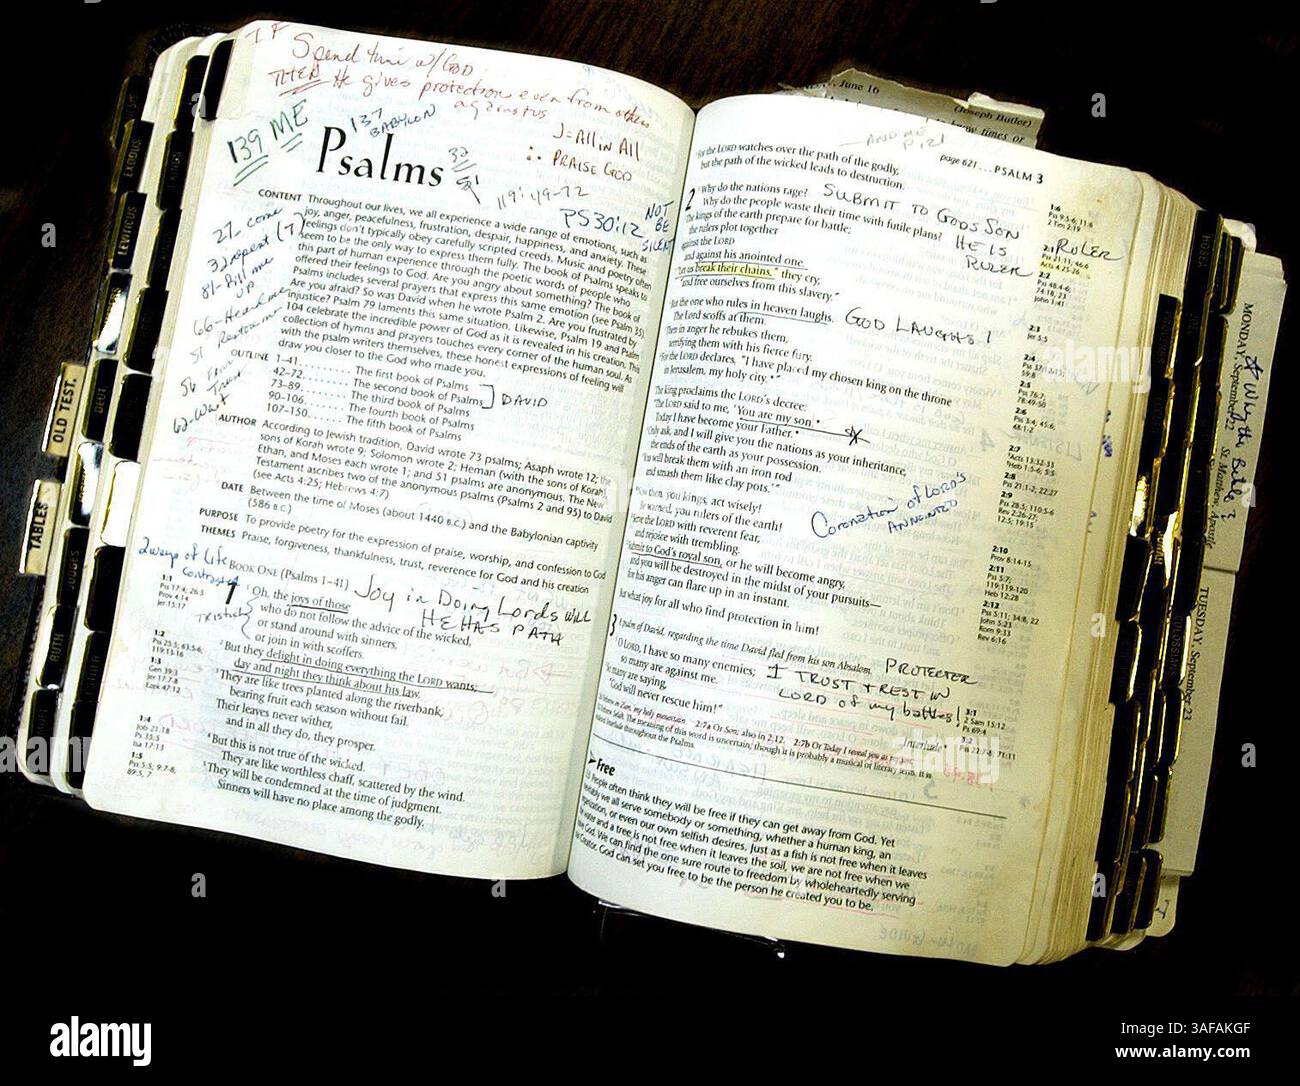 Spend time w/ GOD
THEN He gives protection even from others
against us
139 ME
137
BABYLON
J = All in All
∴ PRAISE GOD
Psalms
32
51
119:49-72
PS 30:12 NOT
BE
SILENT
CONTENT Throughout our lives, we all experience a wide range of emotions, such as
joy, anger, peacefulness, frustration, despair, happiness, and anxiety. These
feelings don't typically obey carefully scripted creeds. Music and poetry often
seem to be the only way to express them fully. The book of Psalms speaks to
this part of human experience through the poetic words of people who
offered their feelings to God. Are you angry about something? The book of
Psalms includes several prayers that express this same emotion (see Psalm 35)
Are you afraid? So was David when he wrote Psalm 2. Are you frustrated by
injustice? Psalm 79 laments this same situation. Likewise, Psalm 19 and Psalm
104 celebrate the incredible power of God as it is revealed in his creation. This
collection of hymns and prayers touches every corner of the human soul. As
with the psalm writers themselves, these honest expressions of feeling will
draw you closer to the God who made you.
27 - come
32 repent (T)
81 - Fill me
UP
OUTLINE 1–41 . . . . . . . . The first book of Psalms
42–72 . . . . . . . The second book of Psalms
73–89 . . . . . . . The third book of Psalms
90–106 . . . . . . The fourth book of Psalms
107–150 . . . . . The fifth book of Psalms
DAVID
AUTHOR According to Jewish tradition, David wrote 73 psalms; Asaph wrote 12; the
sons of Korah wrote 9; Solomon wrote 2; Heman (with the sons of Korah),
Ethan, and Moses each wrote 1; and 51 psalms are anonymous. The New
Testament ascribes two of the anonymous psalms (Psalms 2 and 95) to David
(see Acts 4:25; Hebrews 4:7)
DATE Between the time of Moses (about 1440 B.C.) and the Babylonian captivity
(586 B.C.)
PURPOSE To provide poetry for the expression of praise, worship, and confession to God
THEMES Praise, forgiveness, thankfulness, trust, reverence for God and his creation
2 ways of Life
Contrasted
BOOK ONE (Psalms 1–41)
Joy in Doing Lords WILL
HE HAS PATH
1 Oh, the joys of those
who do not follow the advice of the wicked,
or stand around with sinners,
or join in with scoffers.
2 But they delight in doing everything the LORD wants;
day and night they think about his law.
3 They are like trees planted along the riverbank,
bearing fruit each season without fail.
Their leaves never wither,
and in all they do, they prosper.
4 But this is not true of the wicked.
They are like worthless chaff, scattered by the wind.
5 They will be condemned at the time of judgment.
Sinners will have no place among the godly.
1:1
Pss 17:4; 26:5
Prov 4:14
Jer 15:17
1:2
Pss 25:5; 63:5-6;
119:13-16
1:3
Gen 39:3
Jer 17:7-8
Ezek 47:12
1:4
Job 21:18
Ps 35:5
Isa 17:13
1:5
Pss 5:5; 9:7-8,
89:5, 7
OLD TEST.
TABLES
EXODUS
LEVITICUS
DEUT
JUDGES
RUTH
June 16
(Joseph Butler)
page 621 . . . PSALM 3
6 For the LORD watches over the path of the godly,
but the path of the wicked leads to destruction.
SUBMIT TO GODS SON
HE IS
RULER
RULER
2 1 Why do the nations rage?
Why do the people waste their time with futile plans?
2 The kings of the earth prepare for battle;
the rulers plot together
against the LORD
and against his anointed one.
3 "Let us break their chains," they cry,
"and free ourselves from this slavery."
4 But the one who rules in heaven laughs.
The Lord scoffs at them.
GOD LAUGHS!
5 Then in anger he rebukes them,
terrifying them with his fierce fury.
6 For the LORD declares, "I have placed my chosen king on the throne
in Jerusalem, my holy city.*"
7 The king proclaims the LORD's decree:
"The LORD said to me, 'You are my son.*
Today I have become your Father.*
8 Only ask, and I will give you the nations as your inheritance,
the ends of the earth as your possession.
9 You will break them with an iron rod
and smash them like clay pots.'"
Coronation of LORD'S
ANNOINTED
10 Now then, you kings, act wisely!
Be warned, you rulers of the earth!
11 Serve the LORD with reverent fear,
and rejoice with trembling.
12 Submit to God's royal son, or he will become angry,
and you will be destroyed in the midst of your pursuits—
for his anger can flare up in an instant.
But what joy for all who find protection in him!
3 A psalm of David, regarding the time David fled from his son Absalom.
PROTECTER
I TRUST & REST IN
LORD OF my battles!
1 O LORD, I have so many enemies;
so many are against me.
2 So many are saying,
"God will never rescue him!"
Interlude*
2:6 Hebrew in Zion, my holy mountain. 2:7a Or Son; also in 2:12. 2:7b Or Today I reveal you as my son.
3:2 Hebrew Selah. The meaning of this word is uncertain, though it is probably a musical or literary term. It is
rendered Interlude throughout the Psalms.
Free
2:3 People often think they will be free if they can get away from God. Yet
inevitably we all serve somebody or something, whether a human king, an
organization, or even our own selfish desires. Just as a fish is not free when it leaves
the water and a tree is not free when it leaves the soil, we are not free when we
leave God. We can find the one sure route to freedom by wholeheartedly serving
the Creator. God can set you free to be the person he created you to be.
1:6
Pss 9:5-6; 11:6
2 Tim 2:19
2:1
Pss 21:11; 46:6
Acts 4:25-26
2:2
Pss 48:4-6;
74:18, 23
John 1:41
2:3
Jer 5:5
2:4
Pss 37:12-13;
59:8
2:5
Pss 76:7;
78:49-50
2:6
Pss 3:4; 45:6;
48:1-2
2:7
Acts 13:32-33
Heb 1:5-6; 5:5
2:8
Pss 21:1-2; 22:27
2:9
Pss 28:5; 110:5-6
Rev 2:26-27;
12:5; 19:15
2:10
Prov 8:14-15
2:11
Pss 5:7;
119:119-120
Heb 12:28
2:12
Pss 5:11; 34:8, 22
John 5:23
Rom 9:33
Rev 6:16
3:1
2 Sam 15:12
Ps 69:4
3:2
Pss 22:7-8; 71:11
HOSEA
MONDAY, September 22 St. Matthew, Apostle
Why the Bible?
TUESDAY, September 23
a
alamy
alamy
Image ID: 3AFAKGF
www.alamy.com